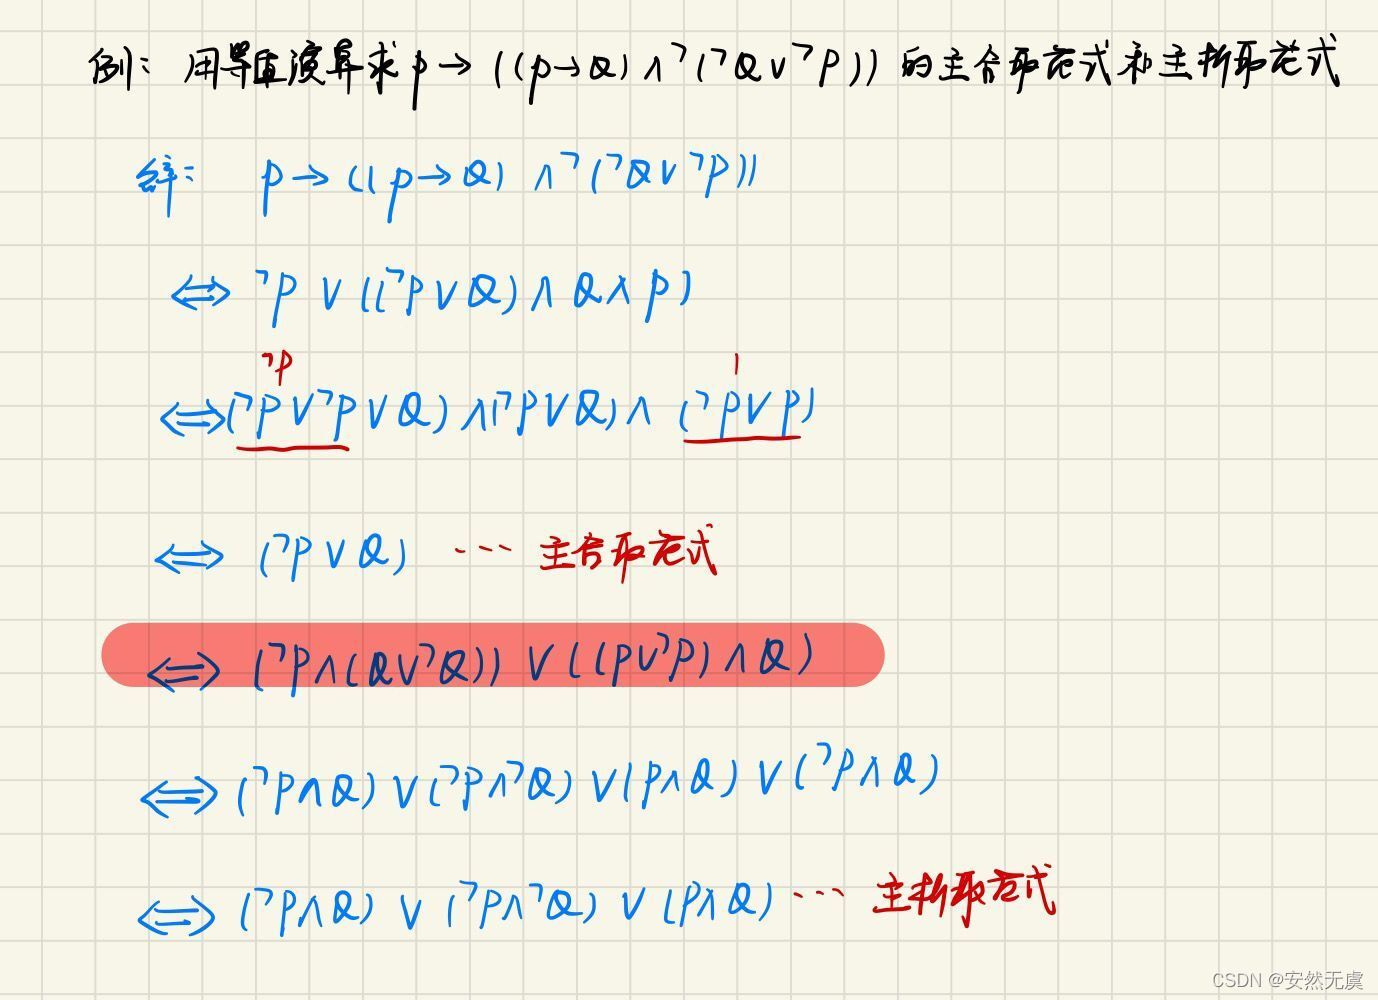 例: 用等值演算求 p→((p→Q)∧¬(¬Q∨¬P)) 的主合取范式和主析取范式
解: p→((p→Q)∧¬(¬Q∨¬P))
⇔ ¬P∨((¬P∨Q)∧Q∧P)
¬P 1
⇔(¬P∨¬P∨Q)∧(¬P∨Q)∧(¬P∨P)
⇔ (¬P∨Q) ... 主合取范式
⇔ (¬P∧(Q∨¬Q))∨((P∨¬P)∧Q)
⇔ (¬P∧Q)∨(¬P∧¬Q)∨(P∧Q)∨(¬P∧Q)
⇔ (¬P∧Q)∨(¬P∧¬Q)∨(P∧Q) ... 主析取范式
CSDN @安然无虞